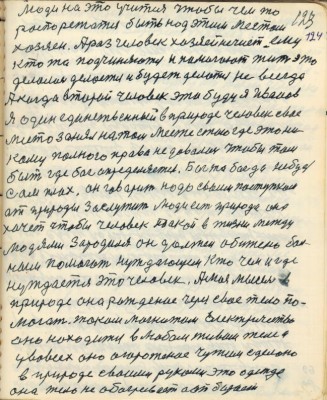 Люди на это учится чтобы чем то 123
распоражатся быть над этим местом 124
хозяен. А раз человек хозяейничает, ему
кто та подчиняютi и помогают жит это
делали делоетi и будет делоти не всегда
А когда второй человек это буду я Иванов
Я один единственный в природе человек свае
место занял на том месте стою где это ни-
кому полного права не довали чтобы там
быт где бог определяется. Быть то богом
сам так, он говорит надо своим поступком
от природы заслужит людмет природа она
хочет чтобы человек такой в жизни между
людями зародился он должен обижено бол-
ному помогат нуждающему кто чем и где
нуждается это человек. А моя мысел
природе оно рождение через свае тело по-
могат. током магнитом електричество
оно находити в любом живом теле
у всех оно огорожаное чужим сделано
в природе своими рукоми это одежда
она тело не обогревает а от бераеи